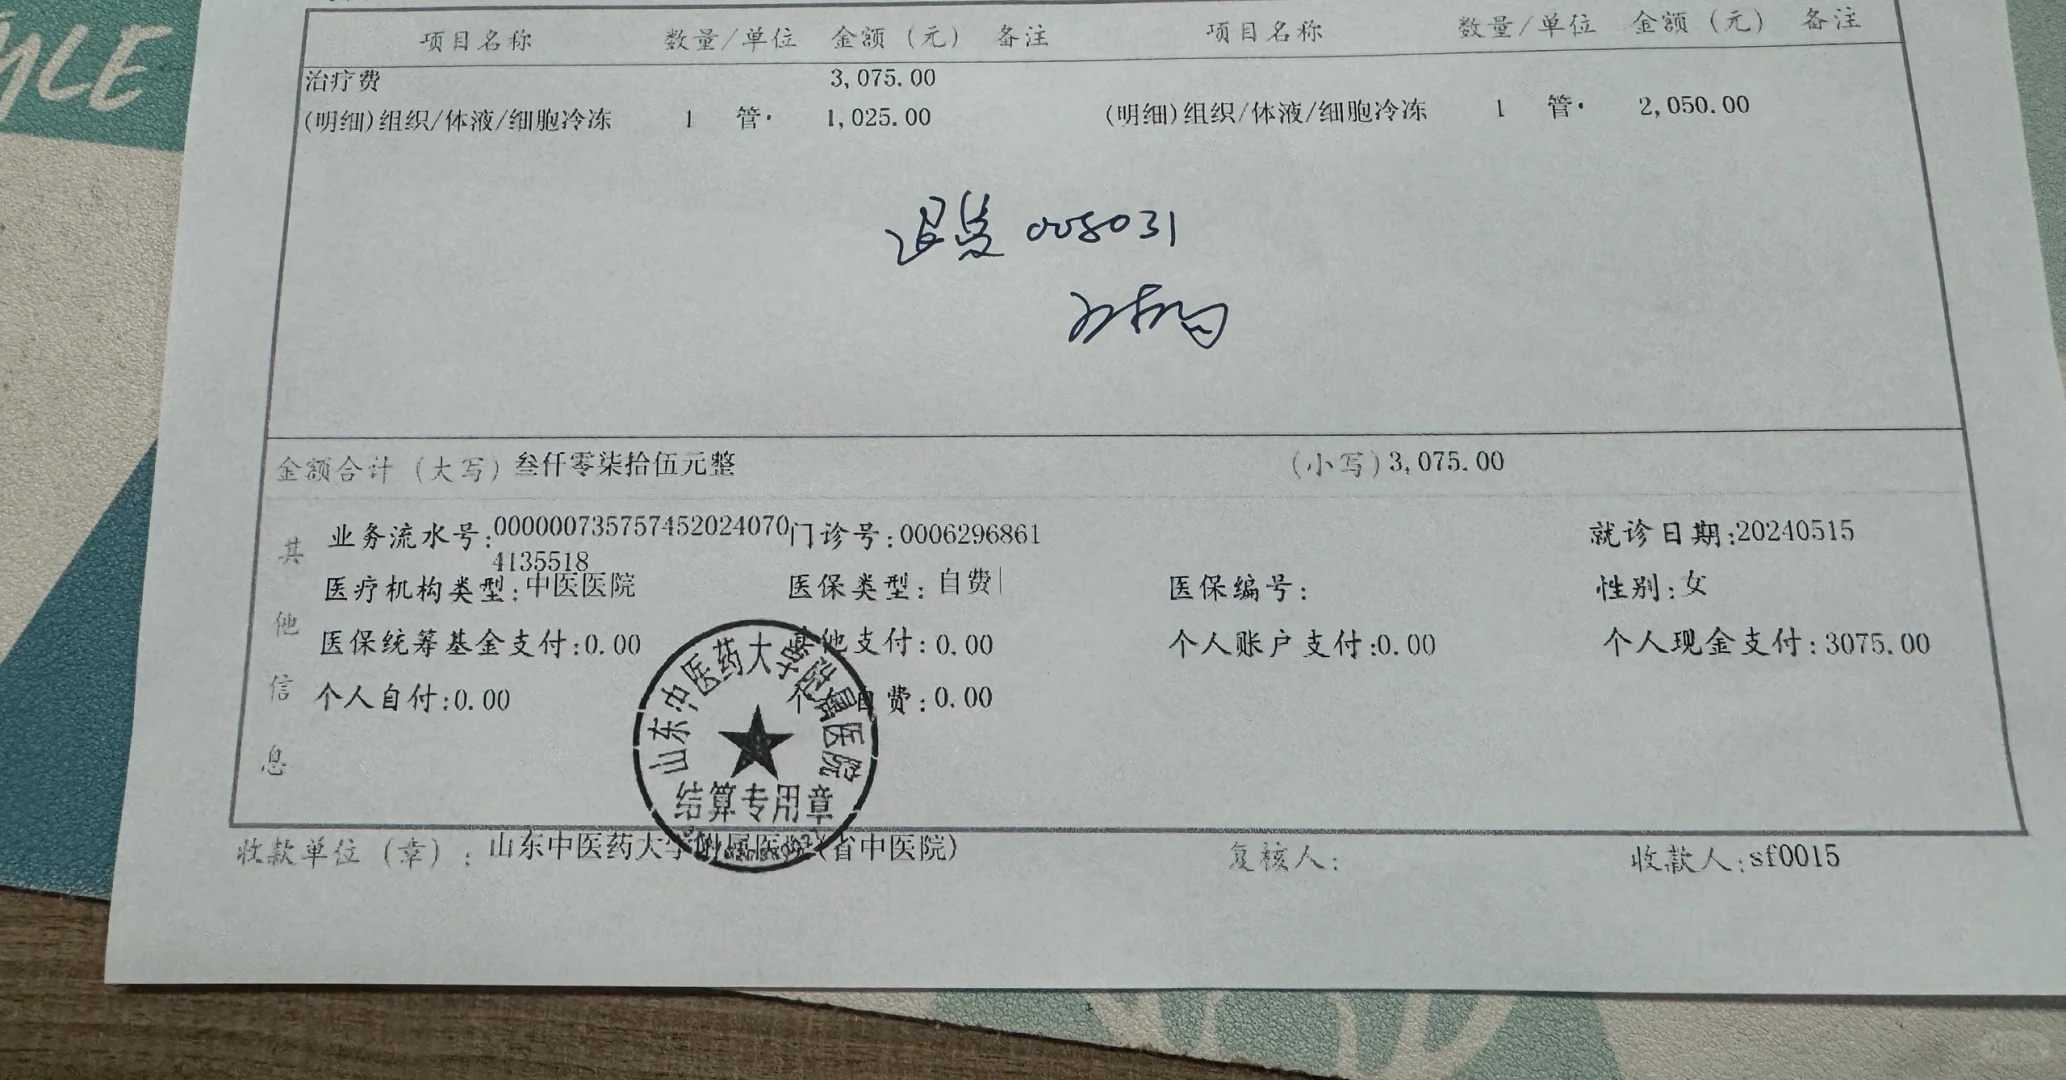 YLE
项目名称 数量/单位 金额（元） 备注 项目名称 数量/单位 金额（元） 备注
治疗费 3,075.00
(明细)组织/体液/细胞冷冻 1 管· 1,025.00 (明细)组织/体液/细胞冷冻 1 管· 2,050.00
退费 008031
金额合计（大写）叁仟零柒拾伍元整 （小写）3,075.00
其他信息
业务流水号:000000735757452024070 门诊号:0006296861 就诊日期:20240515
4135518
医疗机构类型:中医医院 医保类型:自费 医保编号: 性别:女
医保统筹基金支付:0.00 其他支付:0.00 个人账户支付:0.00 个人现金支付:3075.00
个人自付:0.00 个人自费:0.00
山东中医药大学附属医院
结算专用章
收款单位（章）:山东中医药大学附属医院(省中医院) 复核人: 收款人:sf0015